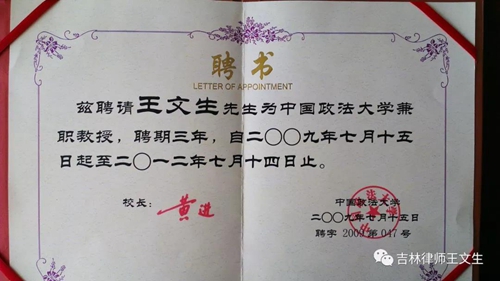 聘书
LETTER OF APPOINTMENT
兹聘请王文生先生为中国政法大学兼
职教授，聘期三年，自二〇〇九年七月十五
日起至二〇一二年七月十四日止。
校长：黄进
中国政法大学
二〇〇九年七月十五日
聘字 2009 第 047 号
吉林律师王文生